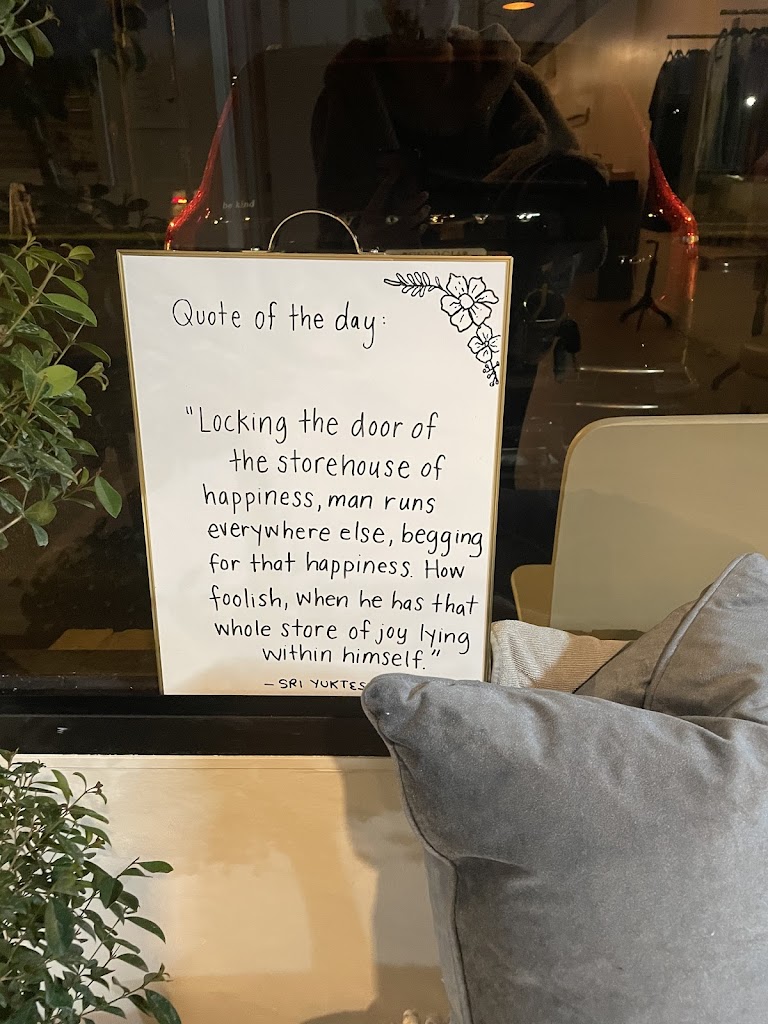 be kind
Quote of the day:
"Locking the door of
the storehouse of
happiness, man runs
everywhere else, begging
for that happiness. How
foolish, when he has that
whole store of joy lying
within himself."
- SRI YUKTES